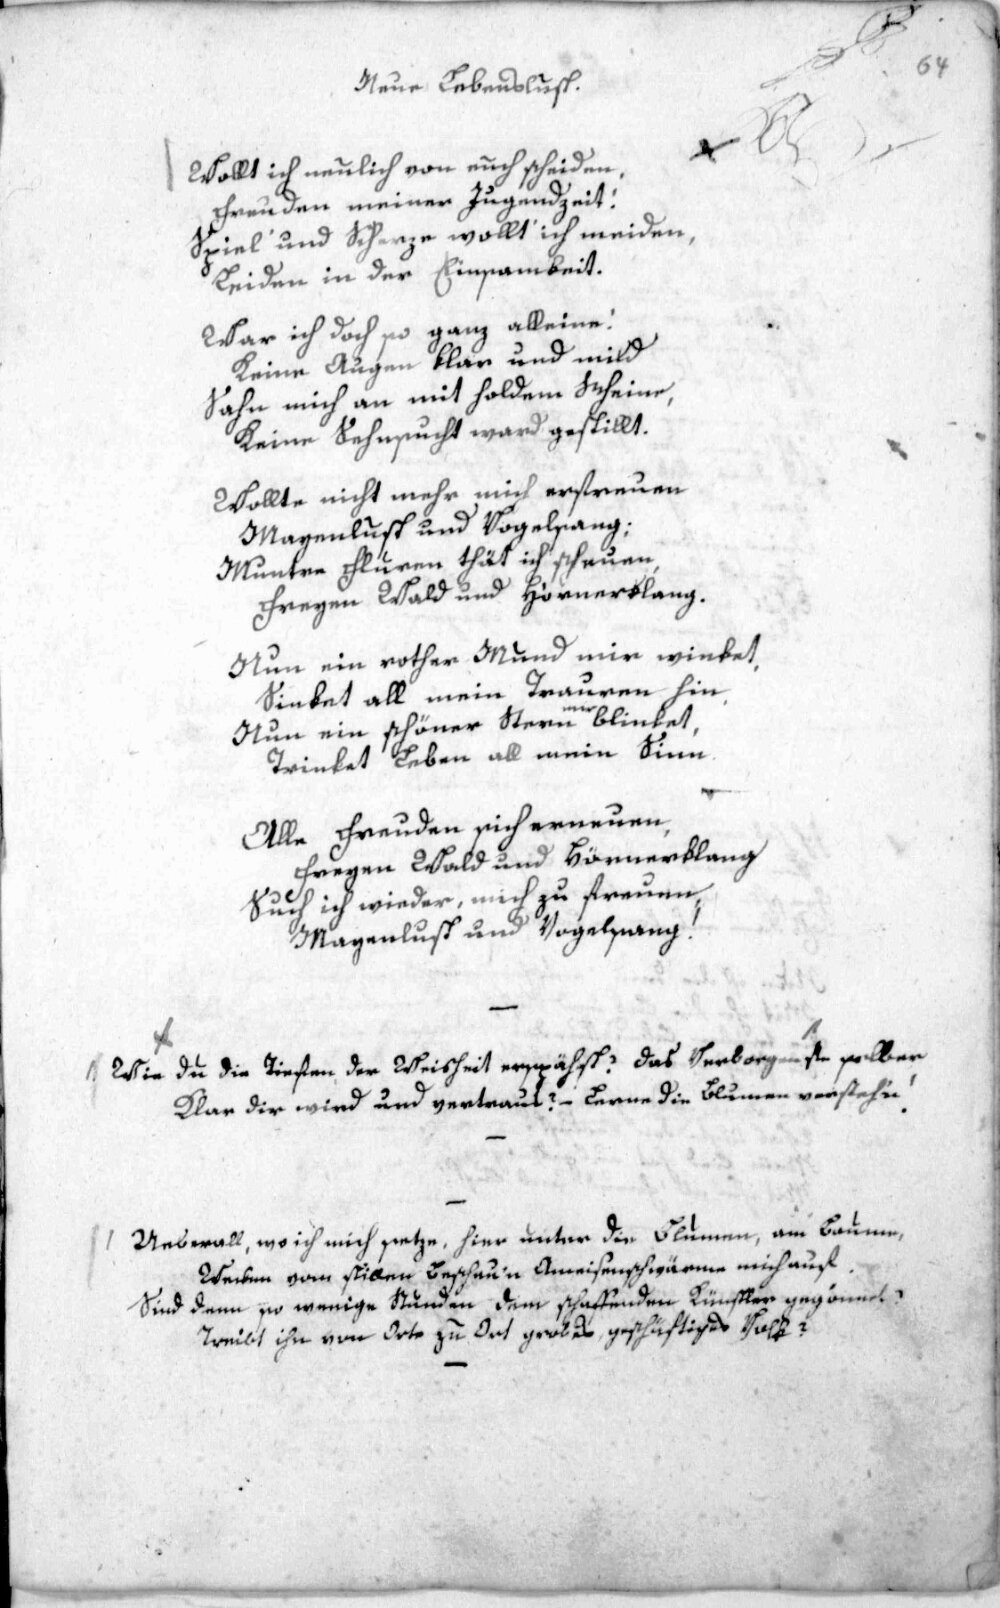 64
Neue Lebenslust.
Wollt ich neulich von euch scheiden,
Freuden meiner Jugendzeit!
Spiel und Scherze wollt' ich meiden,
Leiden in der Einsamkeit.
War ich doch so ganz alleine!
Keine Augen klar und mild
Sahn mich an mit holdem Scheine,
Keine Sehnsucht ward gestillt.
Wollte nicht mehr mich erfreuen
Mayenlust und Vogelsang;
Muntre Fluren thät ich scheuen,
Freyen Wald und Hörnerklang.
Nun ein rother Mund mir winket,
Sinket all mein Trauren hin,
Nun ein schöner Stern mir blinket,
Trinket Leben all mein Sinn.
Alle Freuden sich erneuen,
Freyen Wald und Hörnerklang
Such ich wieder, mich zu freuen,
Mayenlust und Vogelsang!
Wie du die Tiefen der Weisheit erspähst? das Verborgenste selber
Klar dir wird und vertraut? – Lerne die Blumen versteh'n!
Ueberall, wo ich mich setze, hier unter die Blumen, am Baume,
Wecken vom stillen Beschau'n Ameisenschwärme mich auf.
Sind denn so wenige Stunden dem schaffenden Künstler gegönnt?
Treibt ihn von Orte zu Ort grobes, geschäftiges Volk?